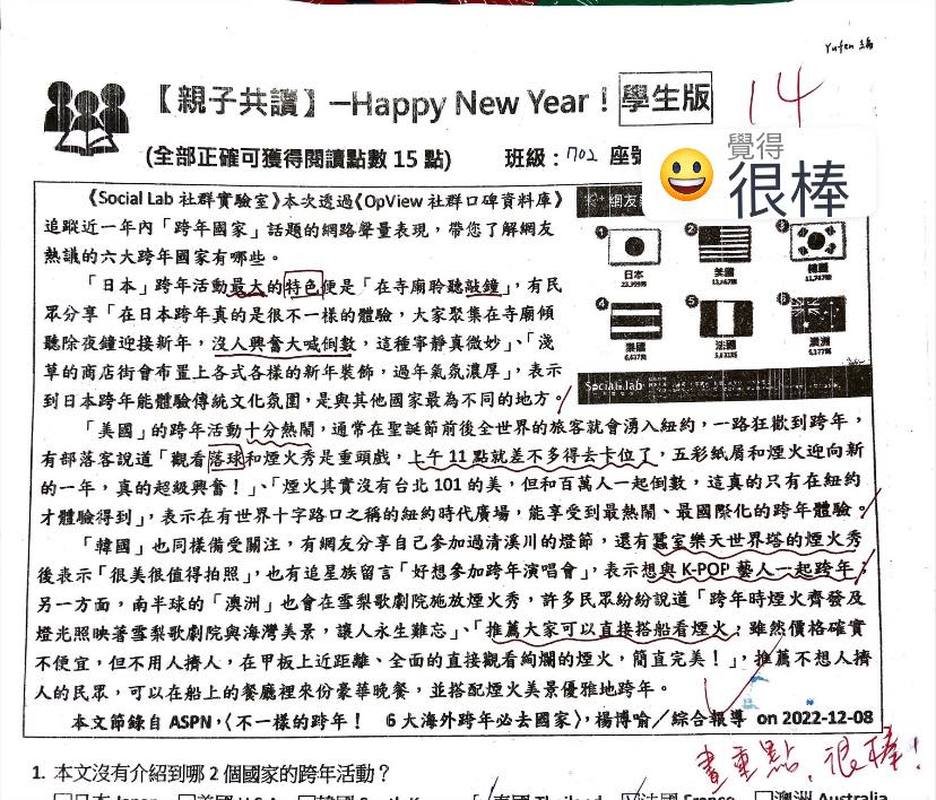 Yufen 編
【親子共讀】—Happy New Year！學生版
14
(全部正確可獲得閱讀點數 15 點) 班級：702 座號
覺得
很棒
《Social Lab 社群實驗室》本次透過《OpView 社群口碑資料庫》
追蹤近一年內「跨年國家」話題的網路聲量表現，帶您了解網友
熱議的六大跨年國家有哪些。
網友
1 日本
2 美國
3 韓國
4 泰國
5 法國
6 澳洲
Social Lab
「日本」跨年活動最大的特色便是「在寺廟聆聽敲鐘」，有民
眾分享「在日本跨年真的是很不一樣的體驗，大家聚集在寺廟傾
聽除夜鐘迎接新年，沒人興奮大喊倒數，這種寧靜真微妙」、「淺
草的商店街會布置上各式各樣的新年裝飾，過年氣氛濃厚」，表示
到日本跨年能體驗傳統文化氛圍，是與其他國家最為不同的地方。
「美國」的跨年活動十分熱鬧，通常在聖誕節前後全世界的旅客就會湧入紐約，一路狂歡到跨年，
有部落客說道「觀看落球和煙火秀是重頭戲，上午 11 點就差不多得去卡位了，五彩紙屑和煙火迎向新
的一年，真的超級興奮！」、「煙火其實沒有台北 101 的美，但和百萬人一起倒數，這真的只有在紐約
才體驗得到」，表示在有世界十字路口之稱的紐約時代廣場，能享受到最熱鬧、最國際化的跨年體驗。
「韓國」也同樣備受關注，有網友分享自己參加過清溪川的燈節，還有蠶室樂天世界塔的煙火秀
後表示「很美很值得拍照」，也有追星族留言「好想參加跨年演唱會」，表示想與 K-POP 藝人一起跨年；
另一方面，南半球的「澳洲」也會在雪梨歌劇院施放煙火秀，許多民眾紛紛說道「跨年時煙火齊發及
燈光照映著雪梨歌劇院與海灣美景，讓人永生難忘」、「推薦大家可以直接搭船看煙火；雖然價格確實
不便宜，但不用人擠人，在甲板上近距離、全面的直接觀看絢爛的煙火，簡直完美！」，推薦不想人擠
人的民眾，可以在船上的餐廳裡來份豪華晚餐，並搭配煙火美景優雅地跨年。
本文節錄自 ASPN，〈不一樣的跨年！ 6 大海外跨年必去國家〉，楊博喻／綜合報導 on 2022-12-08
畫重點，很棒！
1. 本文沒有介紹到哪 2 個國家的跨年活動？
日本 Japan 美國 U.S.A 韓國 South Korea 泰國 Thailand 法國 France 澳洲 Australia